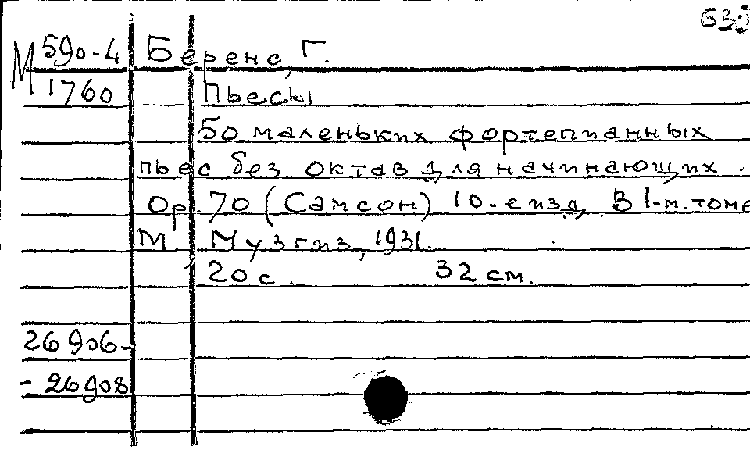 М 590-4 Беренс, Г.
1760 Пьесы
50 маленьких фортепианных
пьес без октав для начинающих.
Ор. 70 (Самсон) 10-е изд. В 1-м томе
М. Музгиз, 1931.
20 с. 32 см.
26906-
- 26908